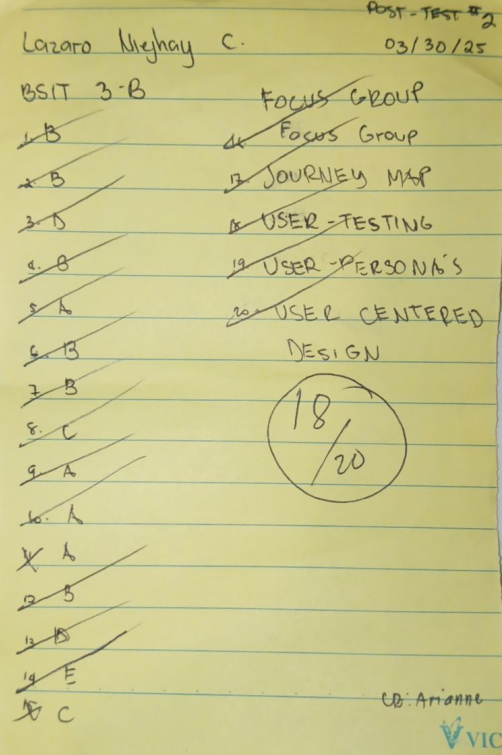 POST-TEST #2
Lazaro Niejhay C.
03/30/25
BSIT 3-B
1. B
2. B
3. D
4. B
5. A
6. B
7. B
8. C
9. A
10. A
11 A
12 B
13 D
14 E
15 C
FOCUS GROUP
16 Focus Group
17. JOURNEY MAP
18 USER-TESTING
19 USER-PERSONA'S
20. USER CENTERED
DESIGN
18/20
CB: Arianne
VIC